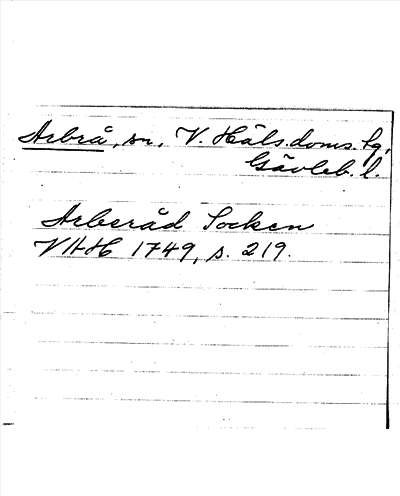 Arbrå, sn, V. Häls.doms. lg,
Gävleb. l.
Arberåd Socken
VHH 1749, s. 219.